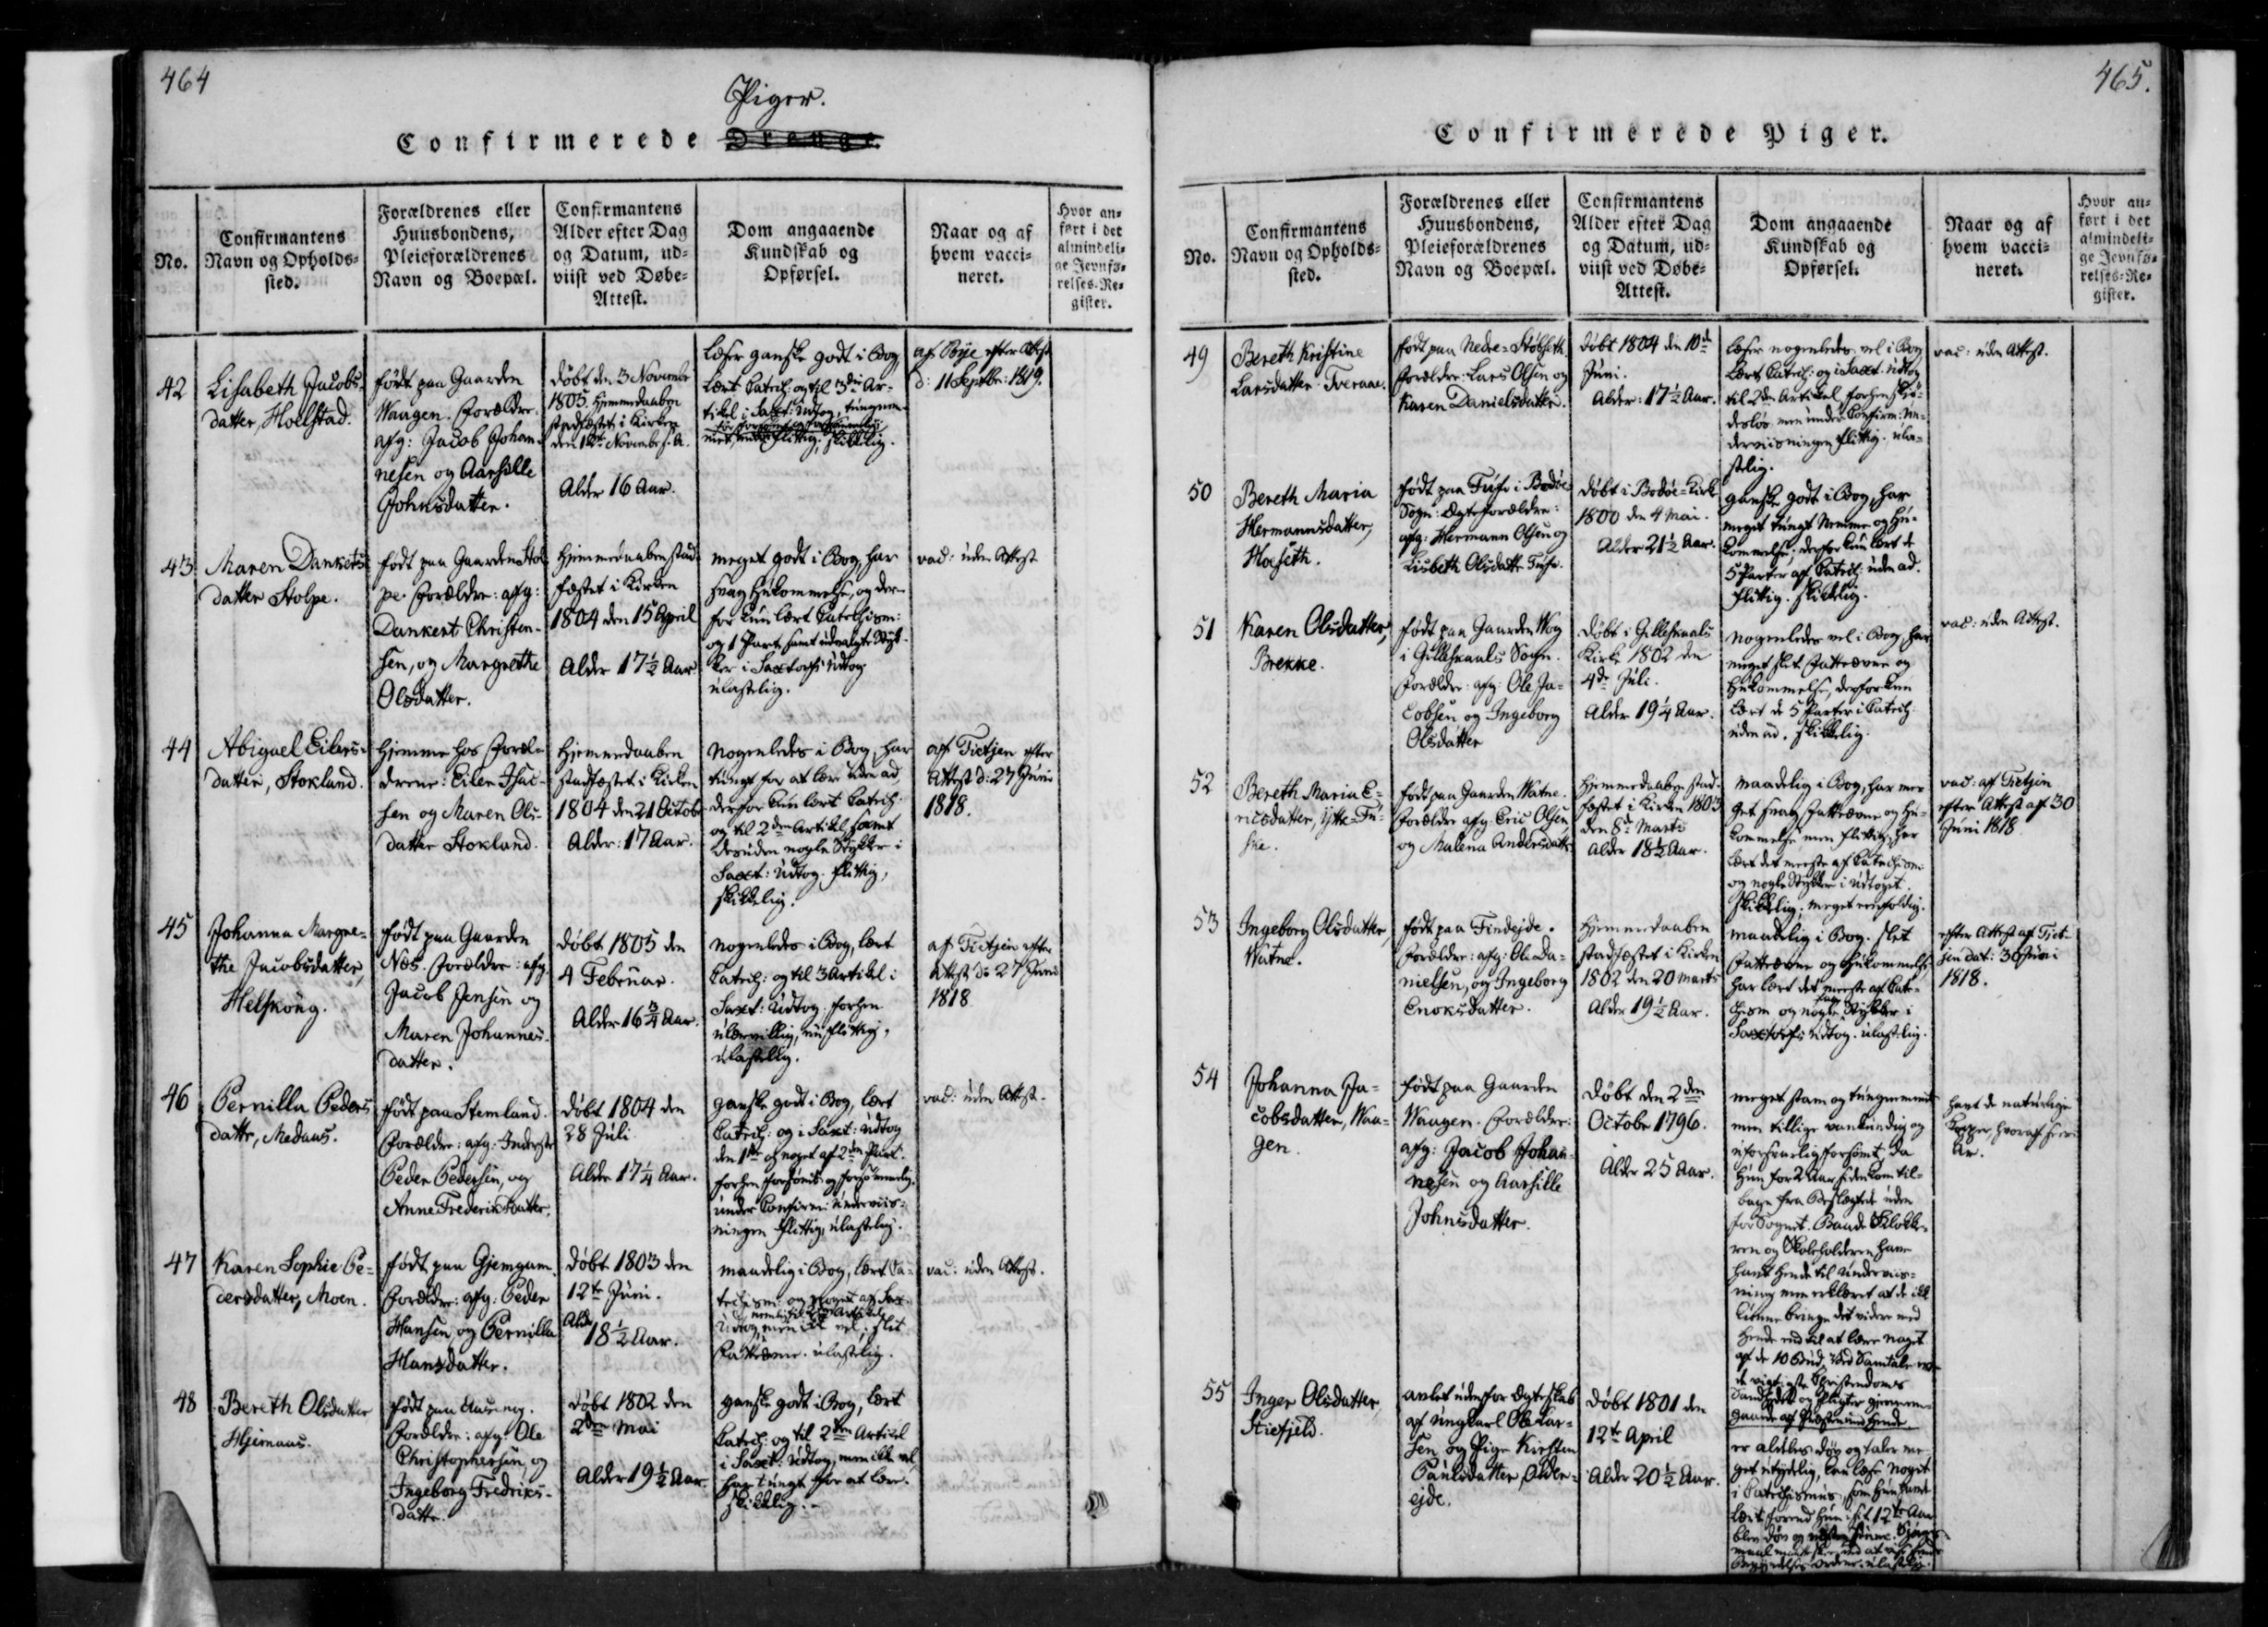 464
Piger.
Confirmerede Drenge.
No.
Confirmantens
Navn og Opholds-
sted.
Forældrenes eller
Huusbondens,
Pleieforældrenes
Navn og Boepæl.
Confirmantens
Alder efter Dag
og Datum, ud-
viist ved Døbe-
Attest.
Dom angaaende
Kundskab og
Opførsel.
Naar og af
hvem vacci-
neret.
Hvor an-
ført i det
almindeli-
ge Jevnfø-
relses-Re-
gister.
42
Lisabeth Jacobs-
datter, Hoelstad.
født paa Gaarden
Waagen. Forældre:
afg: Jacob Johan-
nesen og Aarsille
Johnsdatter.
døbt den 3 Novembr
1805. Hjemmedaaben
stadfæstet i Kirken
Alder 16 Aar.
Læser ganske godt i Bog,
lært Catech: og til 3die Ar-
tikel i Saxt: Udtog, tungnem-
flittig, skikkelig.
af Bye efter Attest
d: 11 Septbr: 1819.
43
Maren Dankerts
datter Stolpe.
født paa Gaarden Stol-
pe. Forældre: afg:
Dankert Christen-
sen, og Margrethe
Olsdatter.
Hjemmedaaben stad-
fæstet i Kirken
1804 den 15 April
Alder 17½ Aar
meget godt i Bog, har
svag Hukommelse, og der-
for kun lært Catechism:
og 1 Part samt udvalgte Styk-
ker i Saxtorphs Udtog
ulastelig.
vac: uden Attest
44
Abigael Eilers-
datter, Stokland.
Hjemme hos Foræl-
drene: Eiler Isac-
sen og Maren Ols-
datter Stokland.
Hjemmedaaben
stadfæstet i Kirken
1804 den 21 Octob
Alder: 17 Aar.
Nogenledes i Bog, har
tungt for at lære uden ad,
derfor kun lært Catech:
og til 2den Artikel samt
desuden nogle Stykker i
Saxt: Udtog. flittig,
skikkelig.
af Tietjen efter
Attest d: 27 Juni
1818.
45
Johanna Margre-
the Jacobsdatter,
Helskoug.
født paa Gaarden
Næs. Forældre: afg.
Jacob Jensen og
Maren Johannes-
datter.
døbt 1805 den
4 Februar.
Alder 16¾ Aar.
nogenledes i Bog, lært
Catech: og til 3 Artikel i
Saxt: Udtog. forhen
ulærvillig, nu flittig,
ulastelig.
af Tietjen efter
Attest d: 27 Juni
1818
46
Pernilla Peders
datter, Medaas.
født paa Stemland.
Forældre: afg: Inderste
Peder Pedersen, og
Anne Frederiksdatter.
døbt 1804 den
28 Juli
Alder 17¼ Aar.
ganske godt i Bog, lært
Catech: og i Saxt: Udtog
den 1ste og noget af 2den Part.
forhen forsømt og forsømmelig,
under Confirm: Underviis-
ningen flittig, ulastelig.
vac: uden Attest.
47
Karen Sophie Pe-
dersdatter, Moen.
født paa Gjemgam.
Forældre: afg: Peder
Hansen, og Pernilla
Hansdatter.
døbt 1803 den
12te Juni.
Alder
18½ Aar.
maadelig i Bog, lært Ca-
techism: og noget af Sax:
nemlig til 2den Artikel
Udtog, men ikke vel, slet
Fatteævne. ulastelig.
vac: uden Attest.
48
Bereth Olsdatter
Hjernaas.
født paa Auseng.
Forældre: afg: Ole
Christophersen, og
Ingeborg Fredriks-
datter.
døbt 1802 den
2den Mai
Alder 19½ Aar.
ganske godt i Bog, lært
Catech: og til 2den Artikel
i Saxt: Udtog, men ikke vel
har tungt for at lære.
skikkelig.
465.
Confirmerede Piger.
No.
Confirmantens
Navn og Opholds-
sted.
Forældrenes eller
Huusbondens,
Pleieforældrenes
Navn og Boepæl.
Confirmantens
Alder efter Dag
og Datum, ud-
viist ved Døbe-
Attest.
Dom angaaende
Kundskab og
Opførsel.
Naar og af
hvem vacci-
neret.
Hvor an-
ført i det
almindeli-
ge Jevnfø-
relses-Re-
gister.
49
Bereth Kristine
Larsdatter Tveraae.
født paa Nedre-Støbseth.
Forældre: Lars Olsen og
Karen Danielsdatter.
døbt 1804 den 10de
Juni.
Alder: 17½ Aar.
læser nogenledes vel i Bog
lært Catech: og i Saxt: Udtog
til 2den Artikel forhen skjø-
desløs men under Confirm: Un-
derviisningen flittig. ula-
stelig.
vac: uden Attest.
50
Bereth Maria
Hermannsdatter,
Hoeseth.
født paa Tufv i Bodøe
Sogn: Ægteforældre:
afg: Hermann Olsen og
Lisbeth Olsdatter Tufv.
døbt i Bodøe-Kirke
1800 den 4 Mai.
Alder 21½ Aar.
ganske godt i Bog, har
meget tungt Nemme og Hu-
kommelse, derfor kun lært de
5 Parter af Catech: uden ad.
flittig. skikkelig.
51
Karen Olsdatter,
Brekke.
født paa Gaarden Wog
i Gilleskaals Sogn.
Forældre: afg: Ole Ja-
cobsen og Ingeborg
Olsdatter
døbt i Gilleskaals
Kirke 1802 den
4de Juli.
Alder 19¼ Aar.
nogenledes vel i Bog, har
meget slet Fatteævne og
Hukommelse, derfor kun
lært de 5 Parter i Catech:
uden ad. skikkelig.
vac: uden Attest.
52
Bereth Maria E-
ricsdatter, ytte-Fu-
ske.
født paa Gaarden Watne.
Forældre afg: Eric Olsen
og Malena Andersdatter
Hjemmedaaben stad-
fæstet i Kirken 1803
den 8de Marti
Alder 18½ Aar.
maadelig i Bog, har me-
get svag Fatteævne og Hu-
kommelse men flittig, har
lært det meeste af Catechism:
og nogle Stykker i Udtoget.
skikkelig; meget eenfoldig.
vac: af Tietjen
efter Attest af 30
Juni 1818.
53
Ingeborg Olsdatter,
Watne.
født paa Findejde.
Forældre: afg: Ole Da-
nielsen, og Ingeborg
Enoksdatter.
Hjemmedaaben
stadfæstet i Kirken
1802 den 20 Marts
Alder 19½ Aar.
maadelig i Bog. slet
Fatteævne og Hukommelse
har lært det meeste af Cate-
chism og nogle faa Stykker i
Saxtorfs Udtog. ulastelig.
efter Attest af Tiet-
jen dat: 30 Juni
1818.
54
Johanna Ja-
cobsdatter, Waa-
gen.
født paa Gaarden
Waagen. Forældre:
afg: Jacob Johan-
nesen og Aarsille
Johnsdatter.
døbt den 2den
Octobr 1796.
Alder 25 Aar.
meget stam og tungnemmet
men tillige vankundig og
uforsvarlig forsømt, da
hun for 2 Aar siden kom til-
bage fra Beslægtede uden
for Sognet. Baade Klokke-
ren og Skoleholderen have
havt hende til Underviis-
ning men erklæret at de ikke
kunne bringe det videre med
hende end til at lære noget
af de 10 Bud. Ved Samtale ere
de vigtigste Christendoms
Sandheder og Pligter gjennem-
gaaede af Præsten med hende.
havt de naturlige
Kopper, hvoraf sees
Ar.
55
Inger Olsdatter,
Stiefjeld.
avlet udenfor Ægteskab
af Ungkarl Ole Lar-
sen og Pige Kirsten
Paulsdatter, Alder-
ejde.
døbt 1801 den
12te April
Alder 20½ Aar.
er aldeles døv og taler me-
get utydelig, kan læse noget
i Catechismus, som hun havde
lært forend hun i sit 12te Aar
blev døv og
ulastelig.